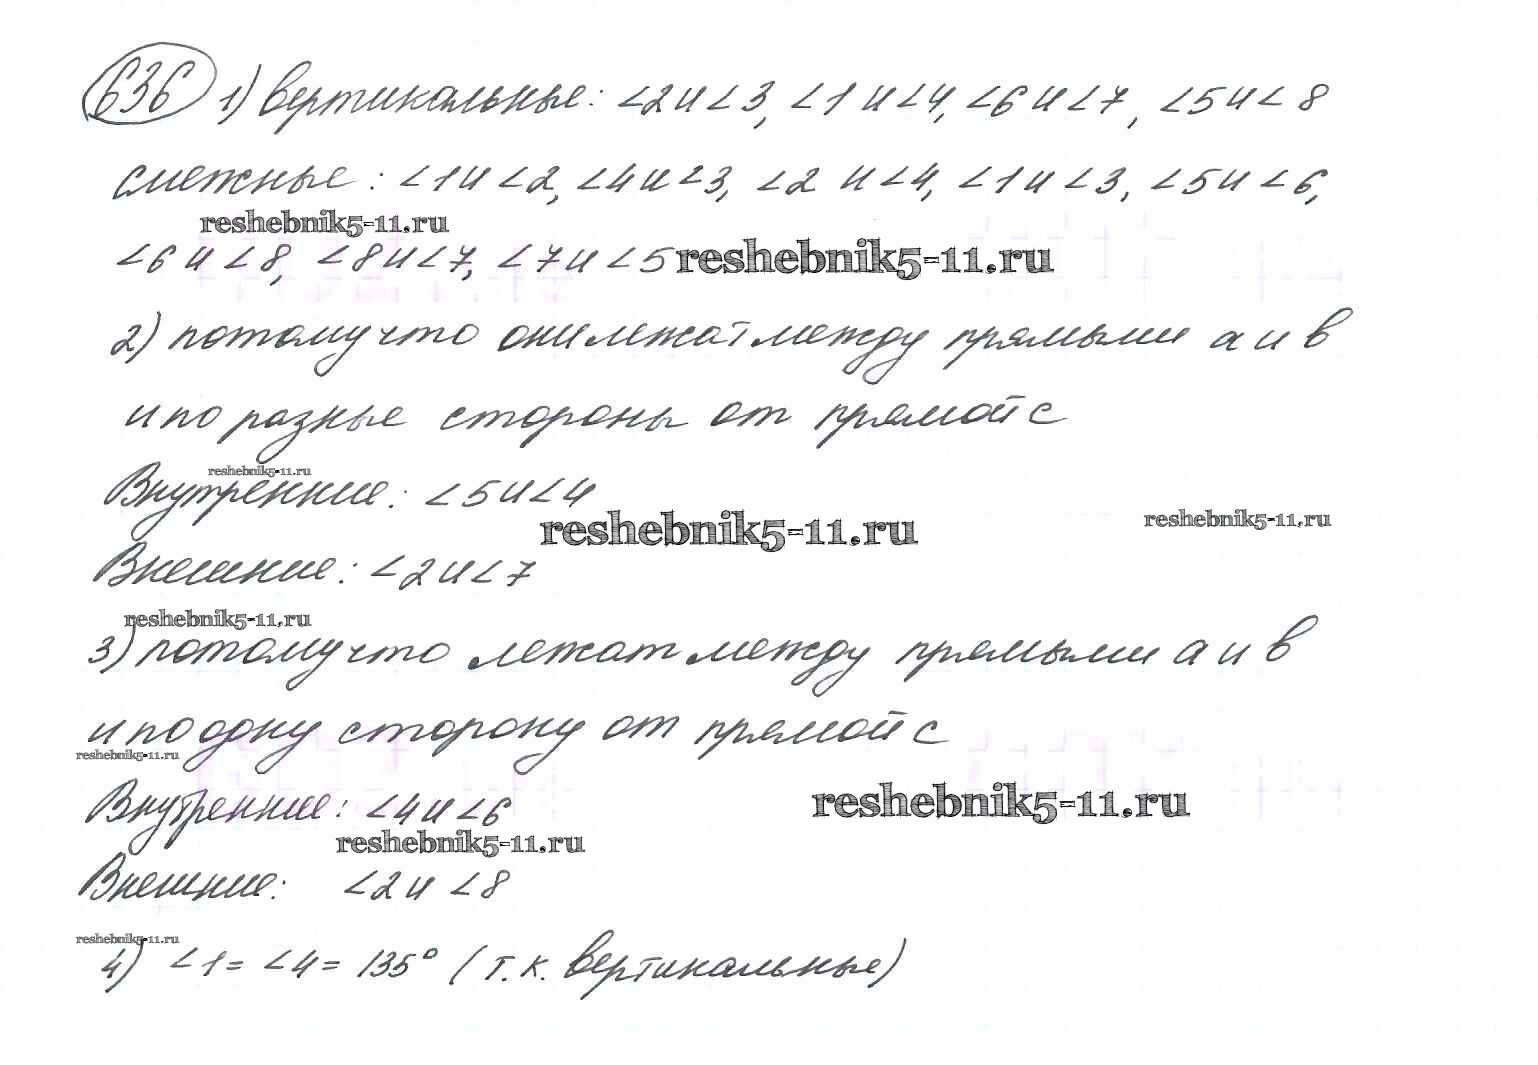 636 1) вертикальные: ∠2 и ∠3, ∠1 и ∠4, ∠6 и ∠7, ∠5 и ∠8
смежные: ∠1 и ∠2, ∠4 и ∠3, ∠2 и ∠4, ∠1 и ∠3, ∠5 и ∠6,
reshebnik5-11.ru
∠6 и ∠8, ∠8 и ∠7, ∠7 и ∠5 reshebnik5-11.ru
2) потому что они лежат между прямыми а и в
и по разные стороны от прямой с
reshebnik5-11.ru
Внутренние: ∠5 и ∠4
reshebnik5-11.ru reshebnik5-11.ru
Внешние: ∠2 и ∠7
reshebnik5-11.ru
3) потому что лежат между прямыми а и в
и по одну сторону от прямой с
reshebnik5-11.ru
Внутренние: ∠4 и ∠6 reshebnik5-11.ru
reshebnik5-11.ru
Внешние: ∠2 и ∠8
reshebnik5-11.ru
4) ∠1 = ∠4 = 135° (т.к. вертикальные)